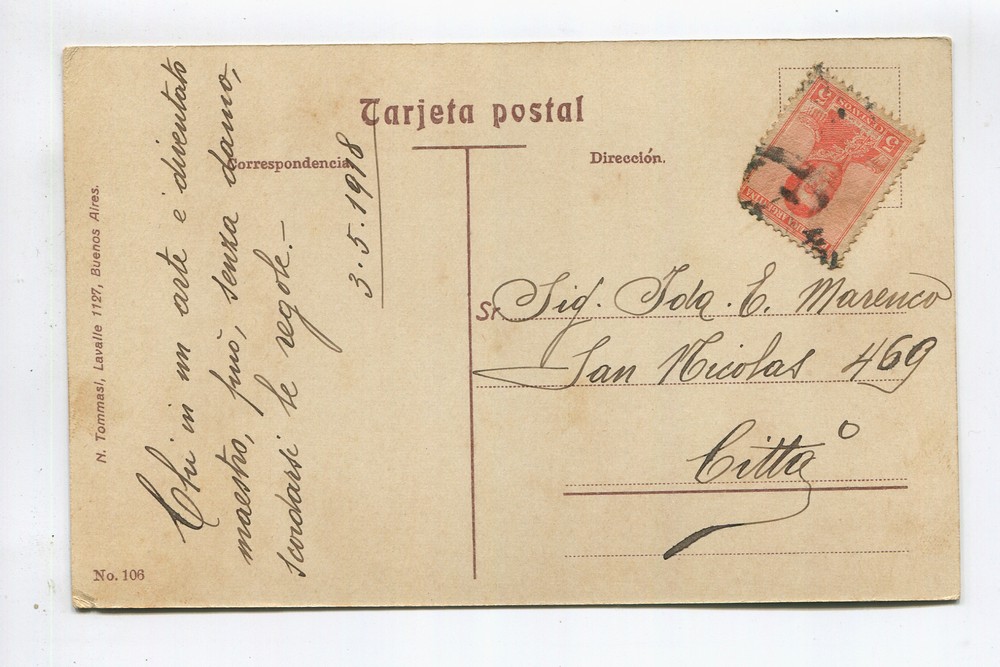 Tarjeta postal
Correspondencia
Dirección.
N. Tommasi, Lavalle 1127, Buenos Aires.
No. 106
Chi in un arte è diventato
maestro, può, senza danno,
scordarsi le regole.-
3.5.1918
Sr. Sig. Ida. E. Marenco
San Nicolas 469
Città
5 CENTAVOS 5